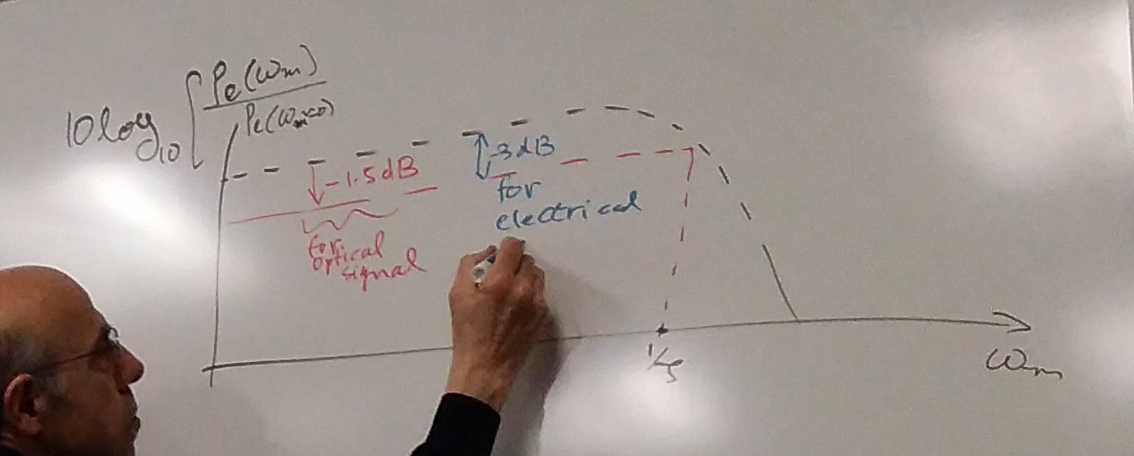 10log₁₀ [ Pe(ωm) / Pe(ωm=0)
-1.5dB
for
optical
signal
-3dB
for
electrical
1/τ
ωm